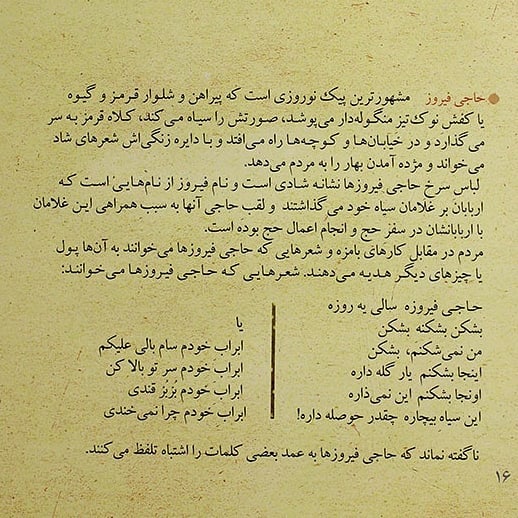 ● حاجی فیروز مشهورترین پیک نوروزی است که پیراهن و شلوار قرمز و گیوه
یا کفش نوک‌تیز منگوله‌دار می‌پوشد، صورتش را سیاه می‌کند، کلاه قرمز به سر
می‌گذارد و در خیابان‌ها و کوچه‌ها راه می‌افتد و با دایره زنگی‌اش شعرهای شاد
می‌خواند و مژده آمدن بهار را به مردم می‌دهد.
لباس سرخ حاجی فیروزها نشانه شادی است و نام فیروز از نام‌هایی است که
اربابان بر غلامان سیاه خود می‌گذاشتند و لقب حاجی آنها به سبب همراهی این غلامان
با اربابانشان در سفر حج و انجام اعمال حج بوده است.
مردم در مقابل کارهای بامزه و شعرهایی که حاجی فیروزها می‌خوانند به آن‌ها پول
یا چیزهای دیگر هدیه می‌دهند. شعرهایی که حاجی فیروزها می‌خوانند:
حاجی فیروزه سالی یه روزه
بشکن بشکنه بشکن
من نمی‌شکنم، بشکن
اینجا بشکنم یار گله داره
اونجا بشکنم این نمی‌ذاره
این سیاه بیچاره چقدر حوصله داره!
یا
ابراب خودم سام بالی علیکم
ابراب خودم سر تو بالا کن
ابراب خودم بُزبُز قندی
ابراب خودم چرا نمی‌خندی
ناگفته نماند که حاجی فیروزها به عمد بعضی کلمات را اشتباه تلفظ می‌کنند.
۱۶